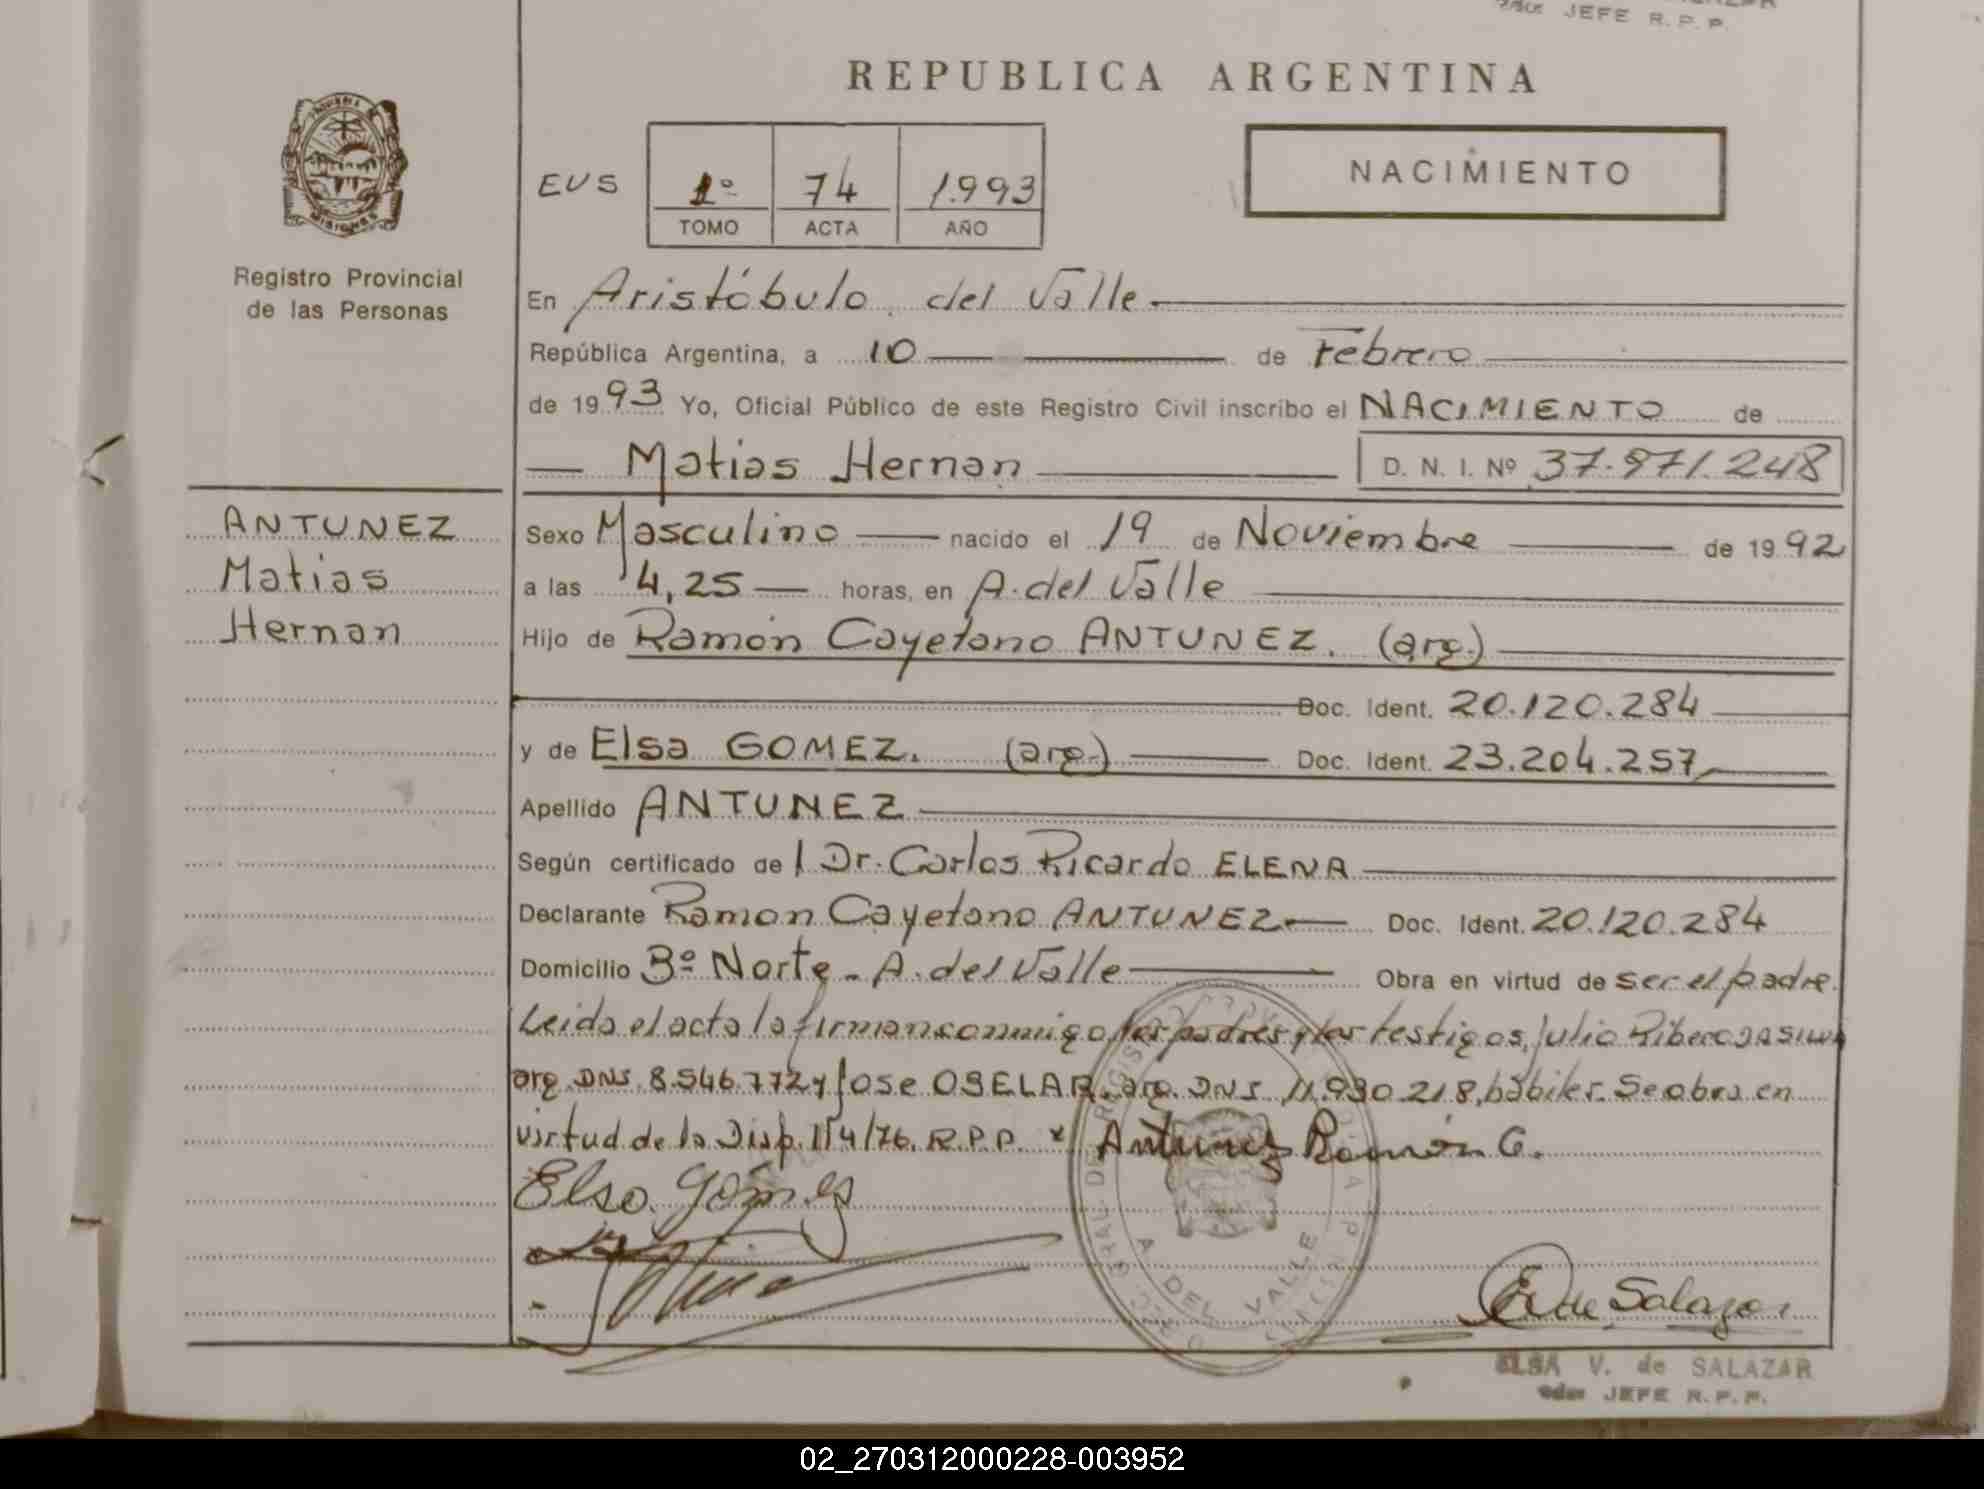 JEFE R.P.P.
REPUBLICA ARGENTINA
MISIONES
Registro Provincial
de las Personas
EVS
1º 74 1.993
TOMO ACTA AÑO
NACIMIENTO
En Aristóbulo del Valle
República Argentina, a 10 de Febrero
de 1993 Yo, Oficial Público de este Registro Civil inscribo el NACIMIENTO de
Matias Hernan D. N. I. Nº 37.971.248
ANTUNEZ
Matias
Hernan
Sexo Masculino nacido el 19 de Noviembre de 1992
a las 4,25 horas, en A. del Valle
Hijo de Ramón Cayetano ANTUNEZ. (arg.)
Doc. Ident. 20.120.284
y de Elsa GOMEZ. (arg.) Doc. Ident. 23.204.257
Apellido ANTUNEZ
Según certificado de l Dr. Carlos Ricardo ELENA
Declarante Ramon Cayetano ANTUNEZ Doc. Ident. 20.120.284
Domicilio 3º Norte - A. del Valle Obra en virtud de ser el padre.
Leida el acta la firman conmigo los padres y los testigos, Julio Ribero
arg. DNI. 8.546.772 y Jose OSELAR. arg. DNI. 11.930.218, hábiles. Se obra en
virtud de la Disp. 114/76. R.P.P. x Antunez Ramón C.
Elsa Gómez
A. DEL VALLE
E V de Salazar
ELSA V. de SALAZAR
JEFE R.P.P.
02_270312000228-003952